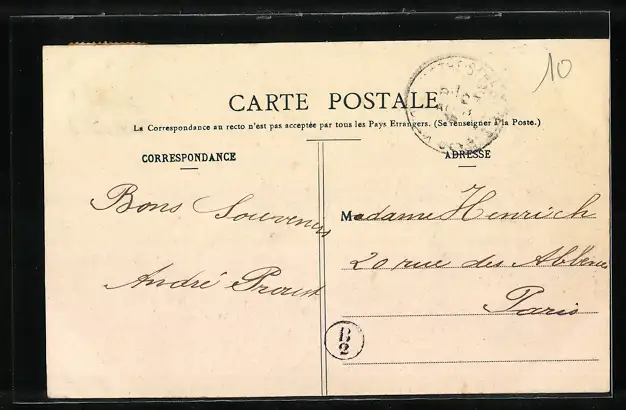 10
CARTE POSTALE
La Correspondance au recto n'est pas acceptée par tous les Pays Etrangers. (Se renseigner à la Poste.)
CORRESPONDANCE
ADRESSE
Bons Souvenirs
André Proust
Madame Henrich
20 rue des
Paris
B
2